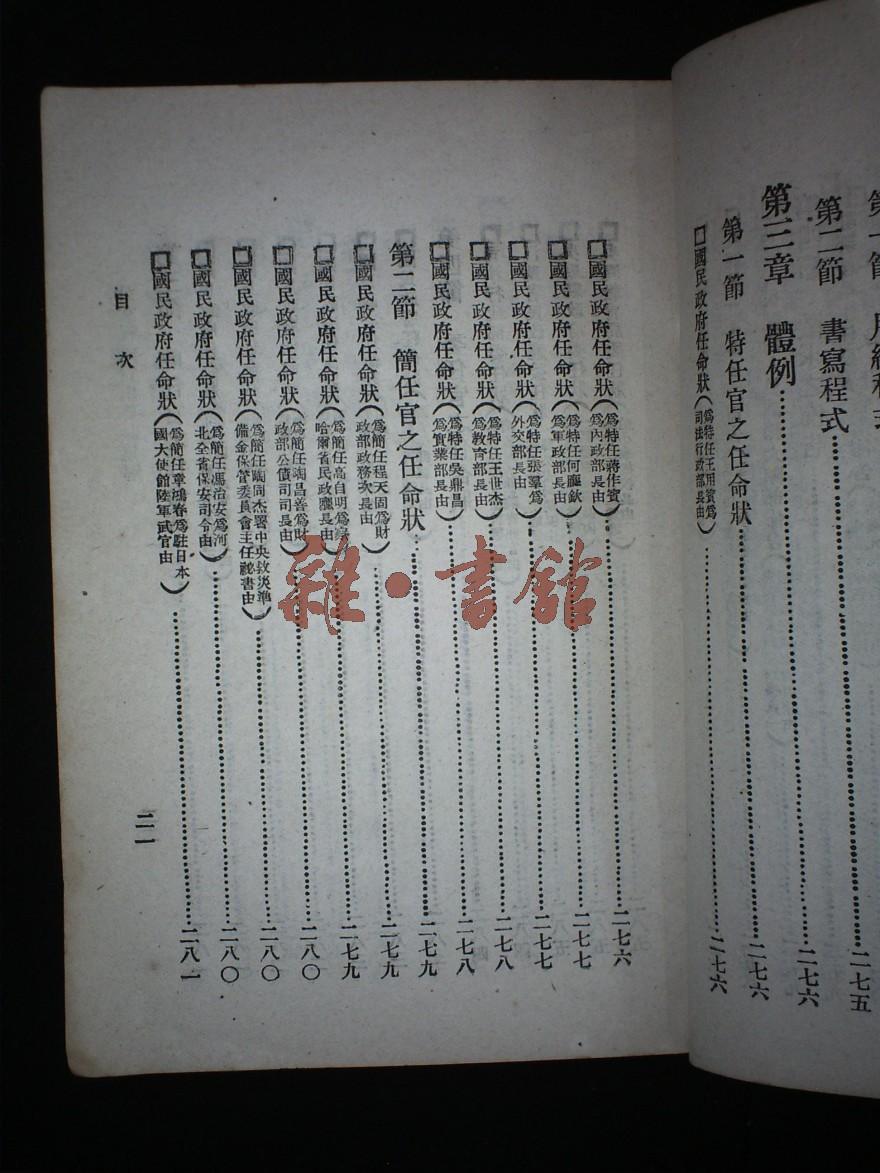 第二節 書寫程式……二七六
第三章 體例……二七六
第一節 特任官之任命狀……二七六
囗國民政府任命狀(爲特任王用賓爲司法行政部長由)……二七六
囗國民政府任命狀(爲特任蔣作賓爲內政部長由)……二七六
囗國民政府任命狀(爲特任何應欽爲軍政部長由)……二七七
囗國民政府任命狀(爲特任張羣爲外交部長由)……二七七
囗國民政府任命狀(爲特任王世杰爲教育部長由)……二七八
囗國民政府任命狀(爲特任吳鼎昌爲實業部長由)……二七八
第二節 簡任官之任命狀……二七九
囗國民政府任命狀(爲簡任程天固爲財政部政務次長由)……二七九
囗國民政府任命狀(爲簡任高自明爲哈爾省民政廳長由)……二七九
囗國民政府任命狀(爲簡任陶昌善爲財政部公債司司長由)……二八〇
囗國民政府任命狀(爲簡任陶尚杰署中央救災準備金保管委員會主任祕書由)……二八〇
囗國民政府任命狀(爲簡任馮治安爲河北全省保安司令由)……二八〇
囗國民政府任命狀(爲簡任章鴻春爲駐日本國大使館陸軍武官由)……二八一
目次
二一
雜·書館